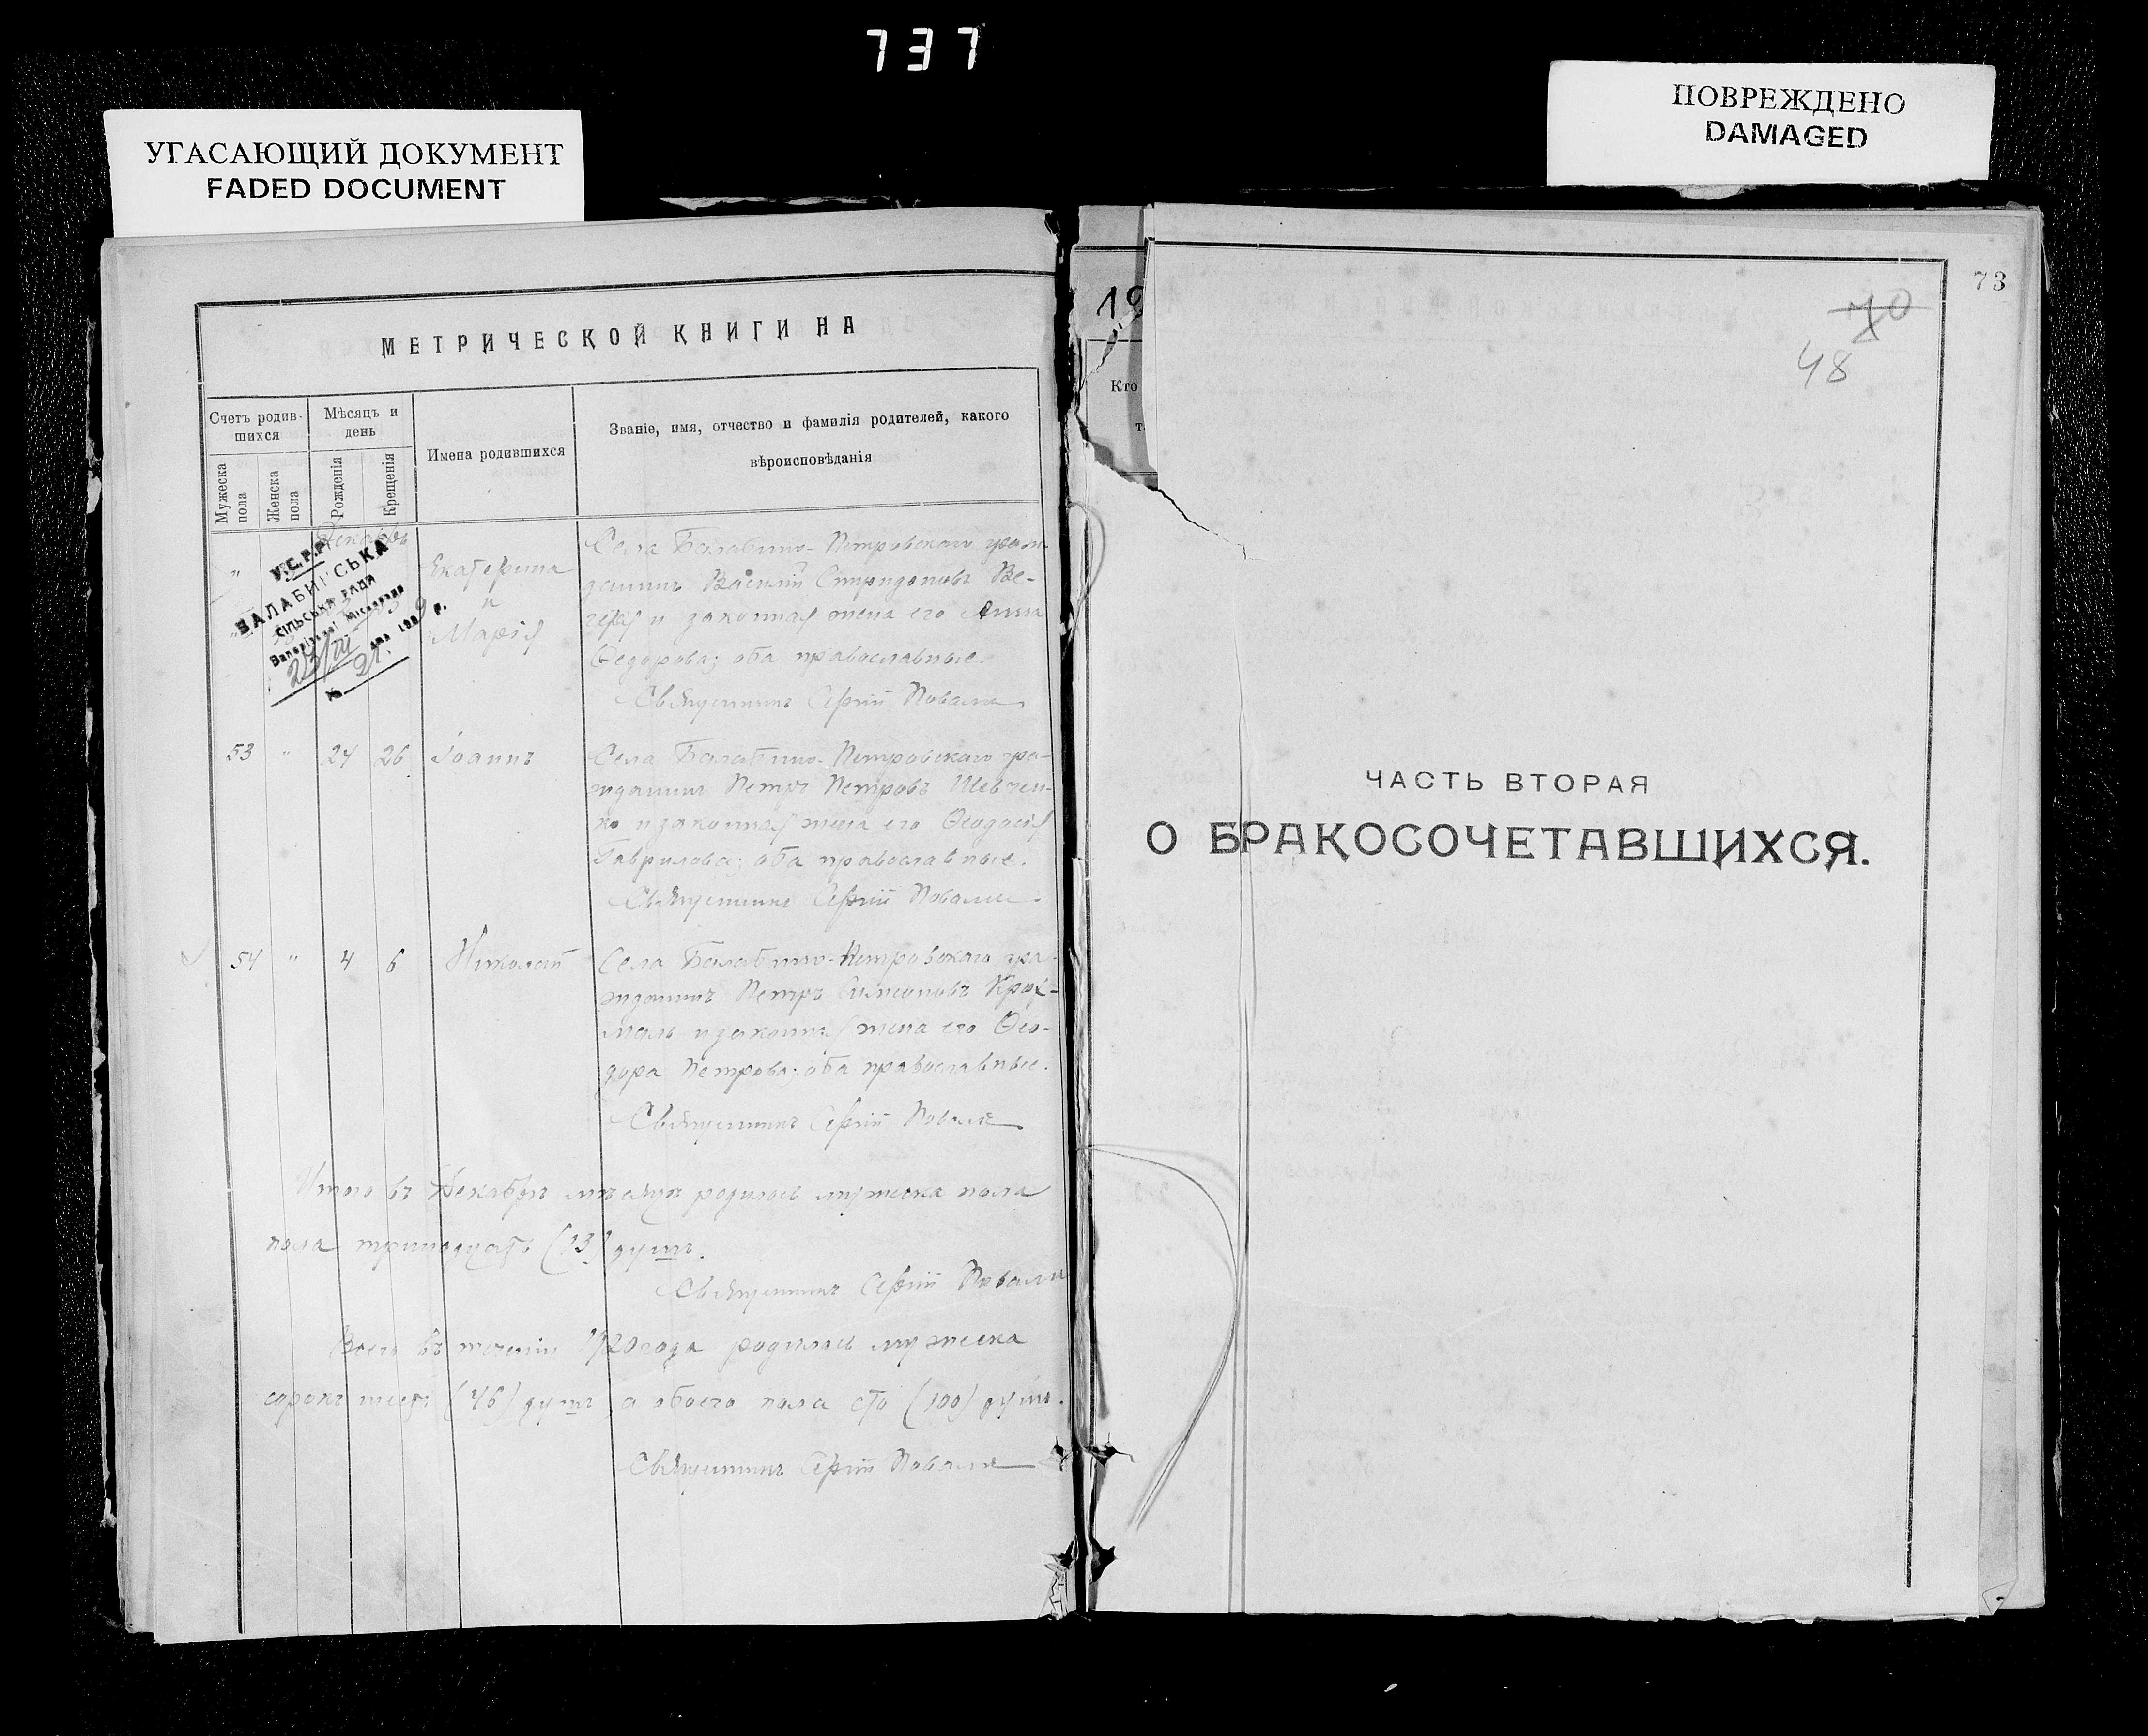 737
УГАСАЮЩИЙ ДОКУМЕНТ
FADED DOCUMENT
ПОВРЕЖДЕНО
DAMAGED
МЕТРИЧЕСКОЙ КНИГИ НА
Счетъ родив-
шихся
Мѣсяцъ и
день
Имена родившихся
Званіе, имя, отчество и фамилія родителей, какого
вѣроисповѣданія
Мужеска
пола
Женска
пола
Рожденія
Крещенія
Декабрь
У.С.Р.Р.
БАЛАБИНСЬКА
СІЛЬСЬКА РАДА
"
Екатерина
и
Марія
Села Балабино-Петровскаго граж-
данинъ Василій Спиридоновъ Ве-
и законная жена его Анна
Федорова; оба православные.
Священникъ Сергій Повала
53 " 24 26 Іоаннъ
Села Балабино-Петровскаго гра-
жданинъ Петръ Петровъ Шевчен-
ко и законная жена его Ѳеодосія
Гаврилова; оба православные.
Священникъ Сергій Повала
54 " 4 6 Николай
Села Балабино-Петровскаго гра-
жданинъ Петръ Симеоновъ Крах-
маль и законная жена его Ѳео-
дора Петрова; оба православные.
Священникъ Сергій Повала
Итого въ Декабрѣ мѣсяцѣ родилось мужеска пола
пола тринадцать (13) душъ.
Священникъ Сергій Повала
Всего въ теченіи 1920 года родилось мужеска
сорокъ шесть (46) душъ, а обоего пола сто (100) душъ.
Священникъ Сергій Повала
19
Кто
т.
73
70
48
ЧАСТЬ ВТОРАЯ
О БРАКОСОЧЕТАВШИХСЯ.